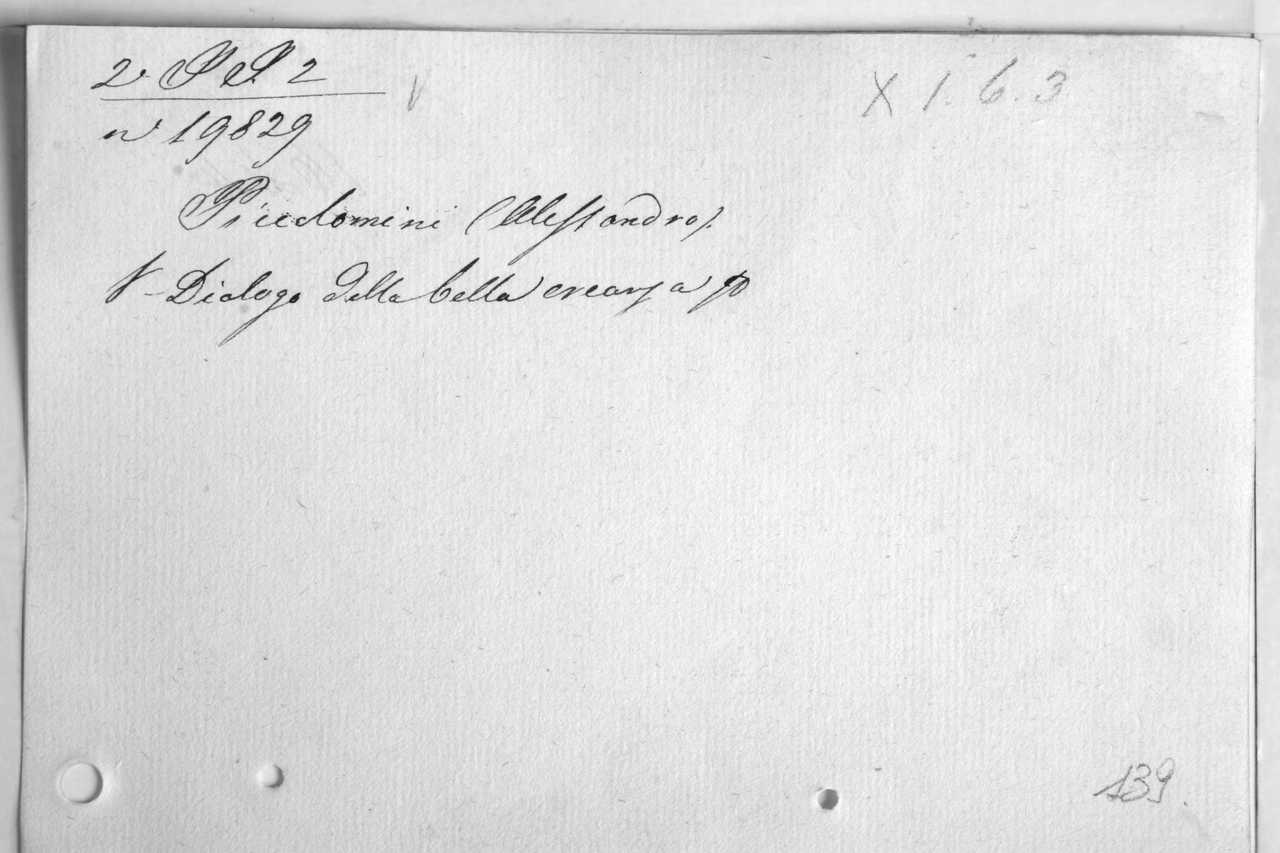 X 1.6.3
n° 19829
Piccolomini (Alessandro).
V - Dialogo della bella creanza
139.